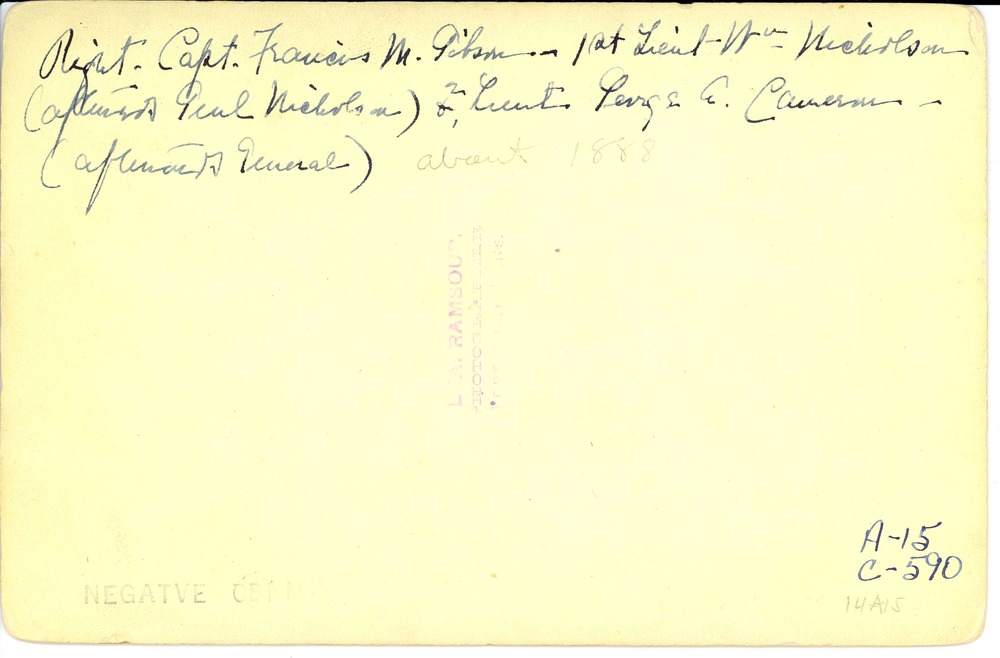 Right. Capt. Francis M. Gibson — 1st Lieut Wm Nicholson
(afterwards Genl Nicholson) 2, Lieut. George A. Cameron —
(afterwards General) about 1888
L. A. RAMSOUR,
PHOTOGRAPHER
NEGATVE
A-15
C-590
14A15